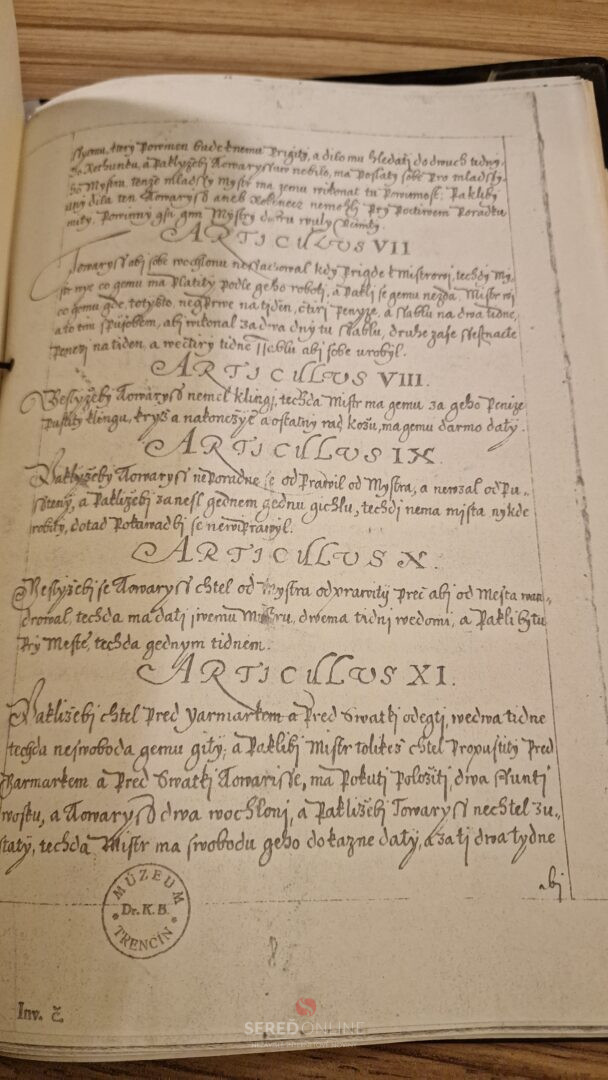 ktery powinen bude k nemu prigiti, a dilo mu hledati do dwuch tidny,
a Paklyžebi Towarystwo nebilo, ma poslaty sobe pro mladsy-
ho Mystra, tenže mladssy Mystr ma gemu wikonat tu powinnost; Pakliby
dila ten Towarys aneb nemohli Pry Poctiwem Poradku
mity, Powinny gsu, gim Mystry
ARTICULUS VII
Towarys abi sobe wochlonu kdy Prigde k Mistrowi, techdy My-
str co gemu ma Platity podle geho roboti, a pakli se gemu nezda, Mistr
co gemu gde, totyžto, negPrwe na tiden, čtiri Penyze, a sslablu na dwa tidne,
a to tim spusobem, abi wikonal za dwa dny tu sslablu, druhe zase ssestnacte
Penezi na tiden, a wečtiry tidne sseblu abi sobe urobyl.
ARTICULUS VIII.
Gestyžeby Towarys nemel klingi, techda Mistr ma gemu za geho Penize
Pustity klingu, kryž a nakončzye a ostatny rad kožu, ma gemu darmo daty.
ARTICULUS IX.
Paklyžeby Towarys neporadne se od Prawil od Mystra, a newzal odpu-
sstený, a Pakližebi zanesl gednem gednu gichlu, techdj nema mista nykde
robity, dotad Pokuwad bi se newiprawyl.
ARTICULUS X.
Gestyžebj se Towarys chtel od Mystra odprawity preč abj od Mesta wan-
drowal, techda ma datj swemu Mistru, dwema tidni wedomi, a Pakli bytu
Pry Meste, techda gednym tidnem.
ARTICULUS XI.
Pakližebj chtel Pred Yarmarkem a Pred Swatki odegti, wedwa tidne
techda neswoboda gemu gity, a Paklibj Mistr tolikes chtel Propustity Pred
Yarmarkem a Pred Swatki Towarisse, ma Pokuti Položiti, dwa Funti
wosku, a Towarys dwa wochlonj, a Pakližebj Towarys nechtel zu-
staty, techda Mistr ma swobodu geho dokazne daty, a za ti dwa tydne
abj
MÚZEUM
Dr. K. B.
TRENČÍN
8
Inv. č.
SEREĎONLINE